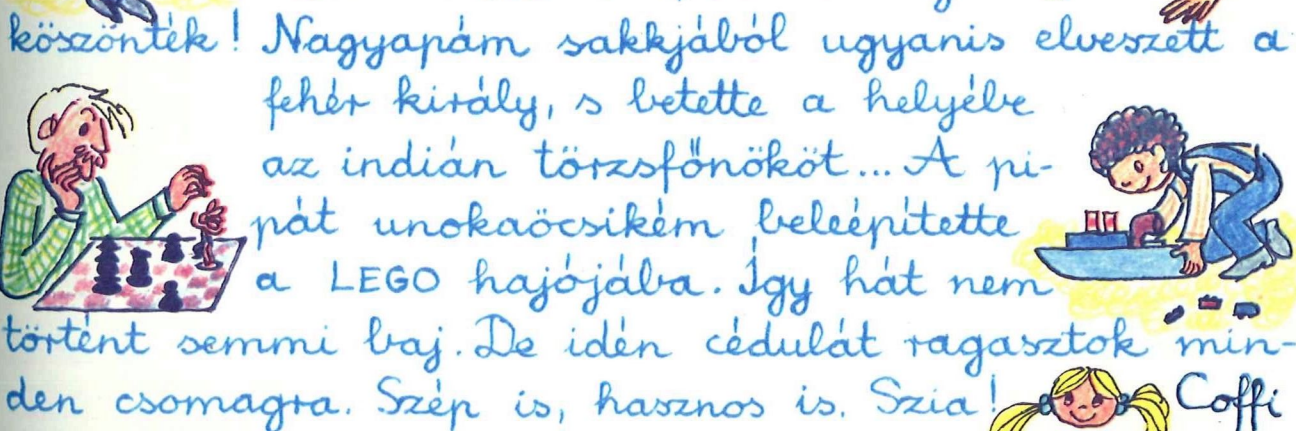 köszönték! Nagyapám sakkjából ugyanis elveszett a
fehér király, s betette a helyébe
az indián törzsfőnököt... A pi-
pát unokaöcsikém beleépítette
a LEGO hajójába. Így hát nem
történt semmi baj. De idén cédulát ragasztok min-
den csomagra. Szép is, hasznos is. Szia! Coffi